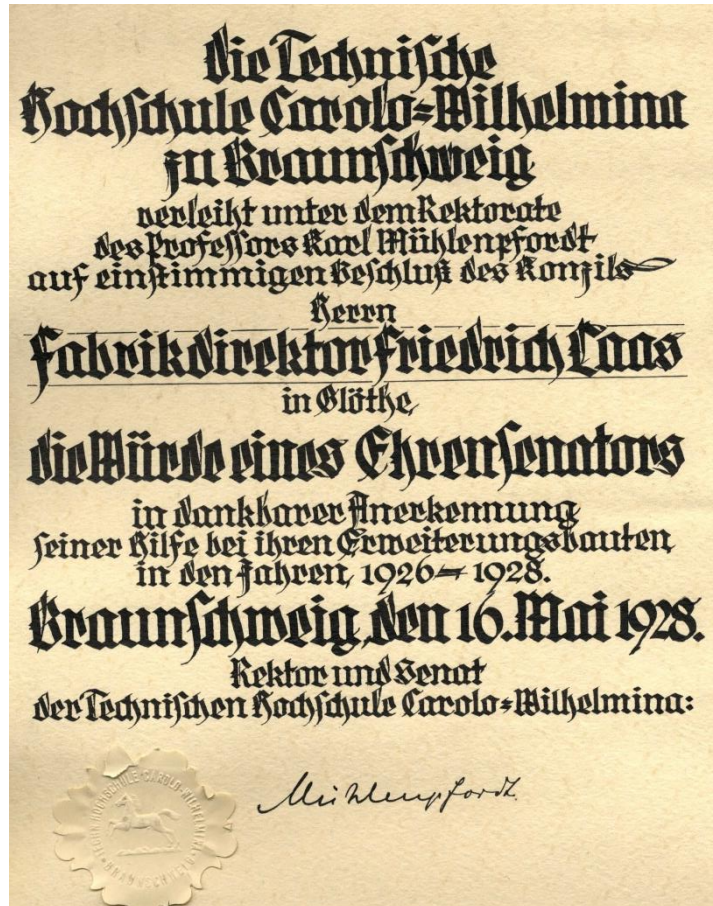 Die Technische
Hochschule Carolo=Wilhelmina
zu Braunschweig
verleiht unter dem Rektorate
des Professors Karl Mühlenpfordt
auf einstimmigen Beschluß des Konzils
Herrn
Fabrikdirektor Friedrich Caas
in Glöthe
die Würde eines Ehrensenators
in dankbarer Anerkennung
seiner Hilfe bei ihren Erweiterungsbauten
in den Jahren 1926-1928.
Braunschweig, den 16. Mai 1928.
Rektor und Senat
der Technischen Hochschule Carolo=Wilhelmina:
Mühlenpfordt.
HOCHSCHULE·CAROLO-WILHELMINA
BRAUNSCHWEIG